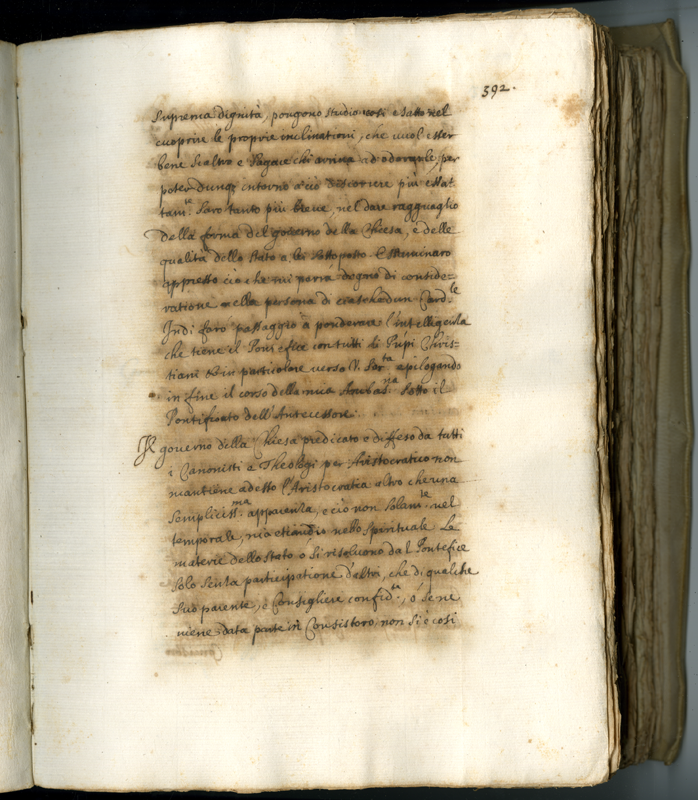 392.
Suprema dignità, pongono studio così esatto nel
cuoprire le proprie inclinationi, che vuol esser
bene scaltro e sagace chi arriva ad odorarle, per
poter dunq; intorno a ciò discorrere più essa.
tam.te Sarò tanto più breve, nel dare ragguaglio
della forma del governo della Chiesa, e delle
qualità dello stato a lei sottoposto. Esaminarò
appresso ciò che mi parrà degno di conside=
ratione nella persona di ciaschedun Card.le
Indi farò passaggio à ponderare l'intelligenza
che tiene il Pontefice con tutti li Prīpi Chris=
tiani et in particolare verso V. Ser.ta epilogando
in fine il corso della mia Ambas.ria sotto il
Pontificato dell'Antecessore.
Il governo della Chiesa predicato e diffeso da tutti
i Canonisti e Theologi per Aristocratico non
mantiene adesso l'Aristocratia altro che una
sempliciss.ma apparenza, e ciò non solam.te nel
temporale, mà etiandio nello spirituale Le
materie dello stato ò si risoluono dal Pontefice
solo senza participatione d'altri, che di qualche
suo parente, ò Consigliere confid.te, ò se ne
viene data parte in Consistoro, non si è così